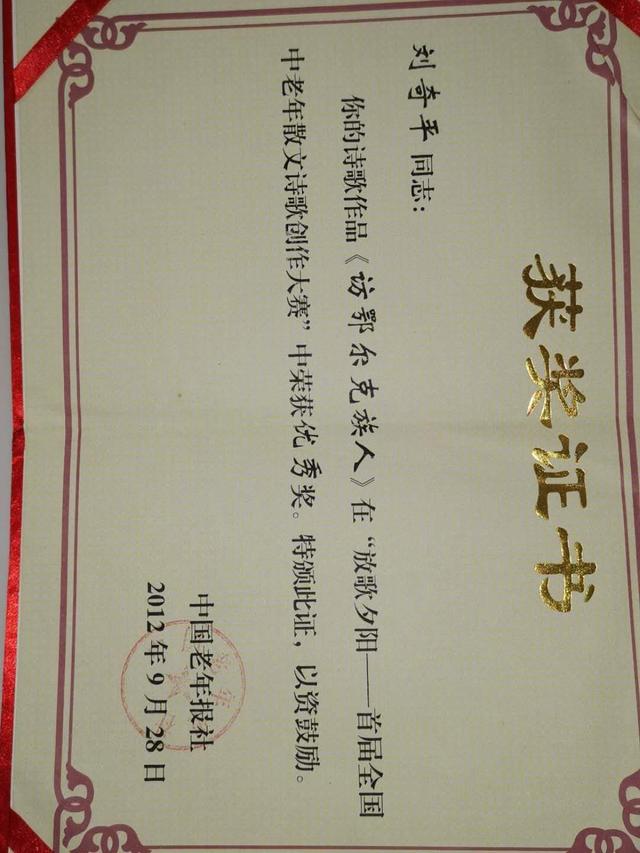 获奖证书
刘奇平 同志：
你的诗歌作品《访鄂尔克族人》在“放歌夕阳——首届全国
中老年散文诗歌创作大赛”中荣获优秀奖。特颁此证，以资鼓励。
中国老年报社
2012年9月28日